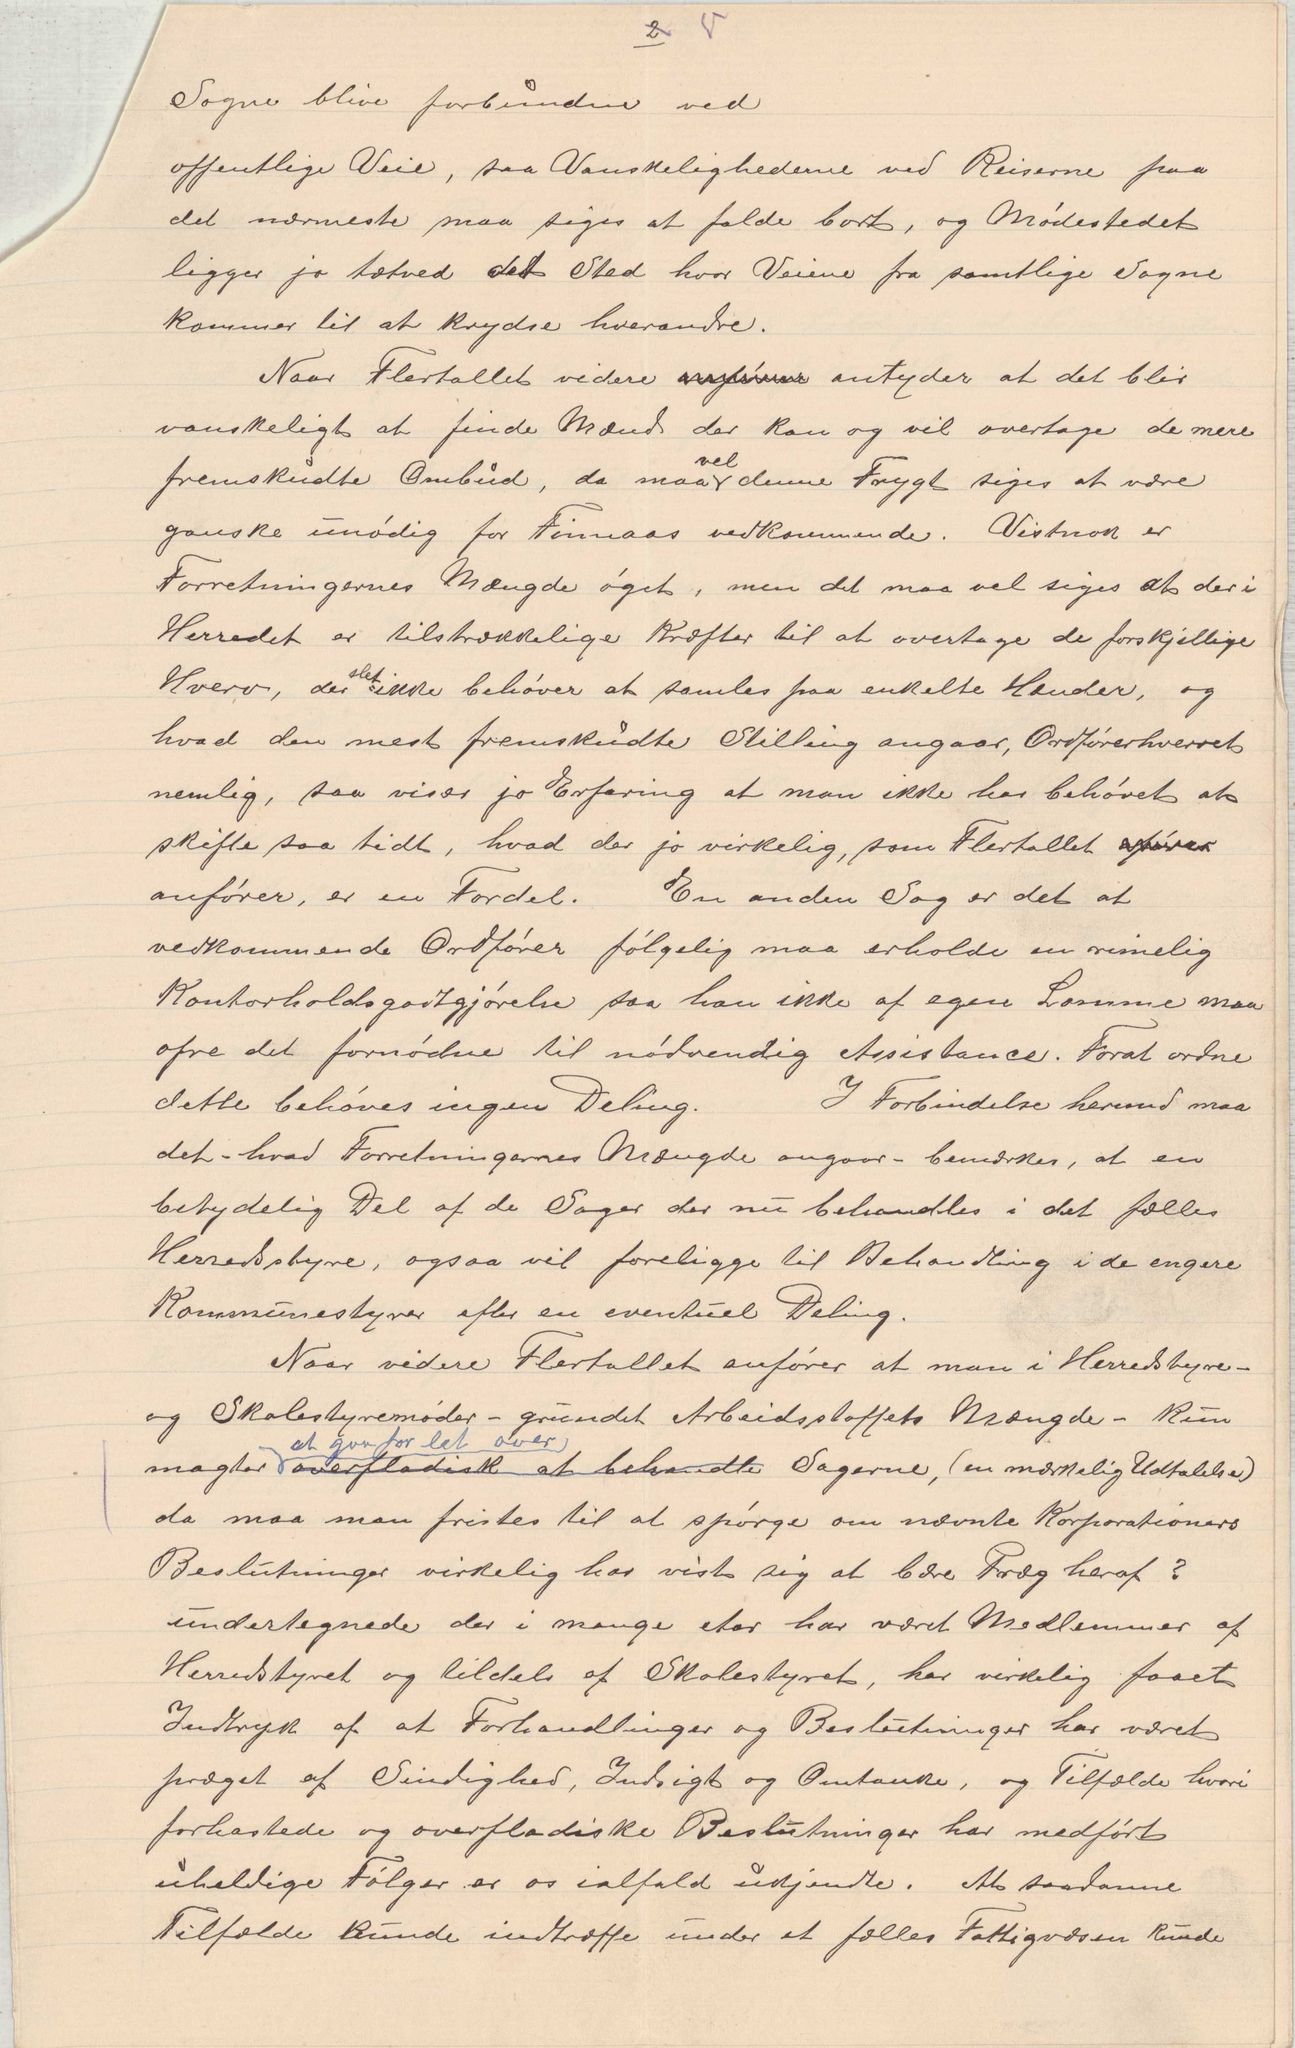 2
Sogne blive forbundne ved
offentlige Veie, saa Vanskelighederne ved Reiserne paa
det nærmeste maa siges at falde bort, og Mødestedet
ligger jo tætved det Sted hvor Veiene fra samtlige Sogne
kommer til at krydse hverandre.
Naar Flertallet videre antyder at det blir
vanskeligt at finde Mænd der kan og vil overtage de mere
fremskudte Ombud, da maa vel denne Frygt siges at være
ganske unødig for Finnaas vedkommende. Vistnok er
Forretningernes Mængde øget, men det maa vel siges at der i
Herredet er tilstrækkelige Kræfter til at overtage de forskjellige
Hverv, der slet ikke behøver at samles paa enkelte Hænder, og
hvad den mest fremskudte Stilling angaar, Ordførerhvervet
nemlig, saa viser jo Erfaring at man ikke har behøvet at
skifte saa tidt, hvad der jo virkelig, som Flertallet
anfører, er en Fordel. En anden Sag er det at
vedkommende Ordfører følgelig maa erholde en rimelig
Kontorholdsgodtgjørelse saa han ikke af egen Lomme maa
ofre det fornødne til nødvendig Assistance. Forat ordne
dette behøves ingen Deling. I Forbindelse hermed maa
det - hvad Forretningernes Mængde angaar - bemærkes, at en
betydelig Del af de Sager der nu behandles i det fælles
Herredsstyre, ogsaa vil foreligge til Behandling i de engere
Kommunestyrer efter en eventuel Deling.
Naar videre Flertallet anfører at man i Herredstyre-
og Skolestyremøder - grundet Arbeidsstoffets Mængde - kun
at gaa for let over
magter overfladisk at behandle Sagerne, (en mærkelig Udtalelse)
da maa man fristes til at spørge om nævnte Korporationers
Beslutninger virkelig har vist sig at bære Præg heraf?
undertegnede der i mange Aar har været Medlemmer af
Herredstyret og tildels af Skolestyret, har virkelig faaet
Indtryk af at Forhandlinger og Beslutninger har været
præget af Sindighed, Indsigt og Omtanke, og Tilfælde hvori
forhastede og overfladiske Beslutninger har medført
uheldige Følger er os ialfald ukjendte. At saadanne
Tilfælde kunde indtræffe under et fælles Fattigvæsen kunde